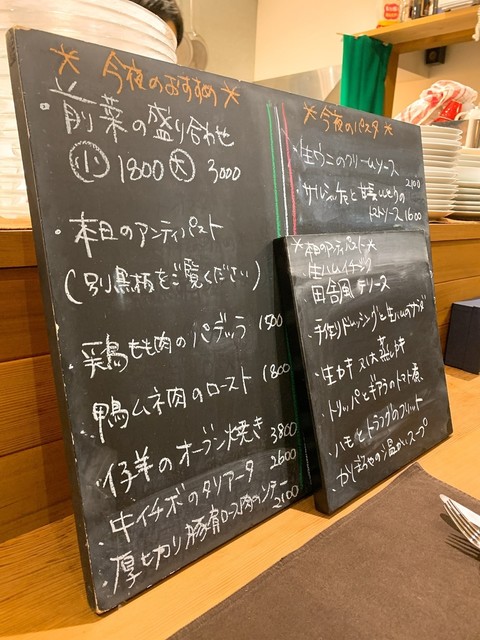 *今夜のおすすめ*
・前菜の盛り合わせ
小 1800 大 3000
・本日のアンティパスト
(別黒板をご覧ください)
・鶏もも肉のパデッラ 1500
・鴨ムネ肉のロースト 1800
・仔羊のオーブン焼き 3800
・牛イチボのタリアータ 2600
・厚切り豚肩ロース肉 2100
*今夜のパスタ*
・生ウニのクリームソース 2100
・サルシッチャと
トマトソース 1600
*本日のアンティパスト*
・生ハム
・田舎風テリーヌ
・手作りドレッシングと生ハムのサラダ
・生カキ 又は 蒸しカキ
・トリッパとギアラのトマト煮
・ハモと のフリット
・かぼちゃの温かいスープ